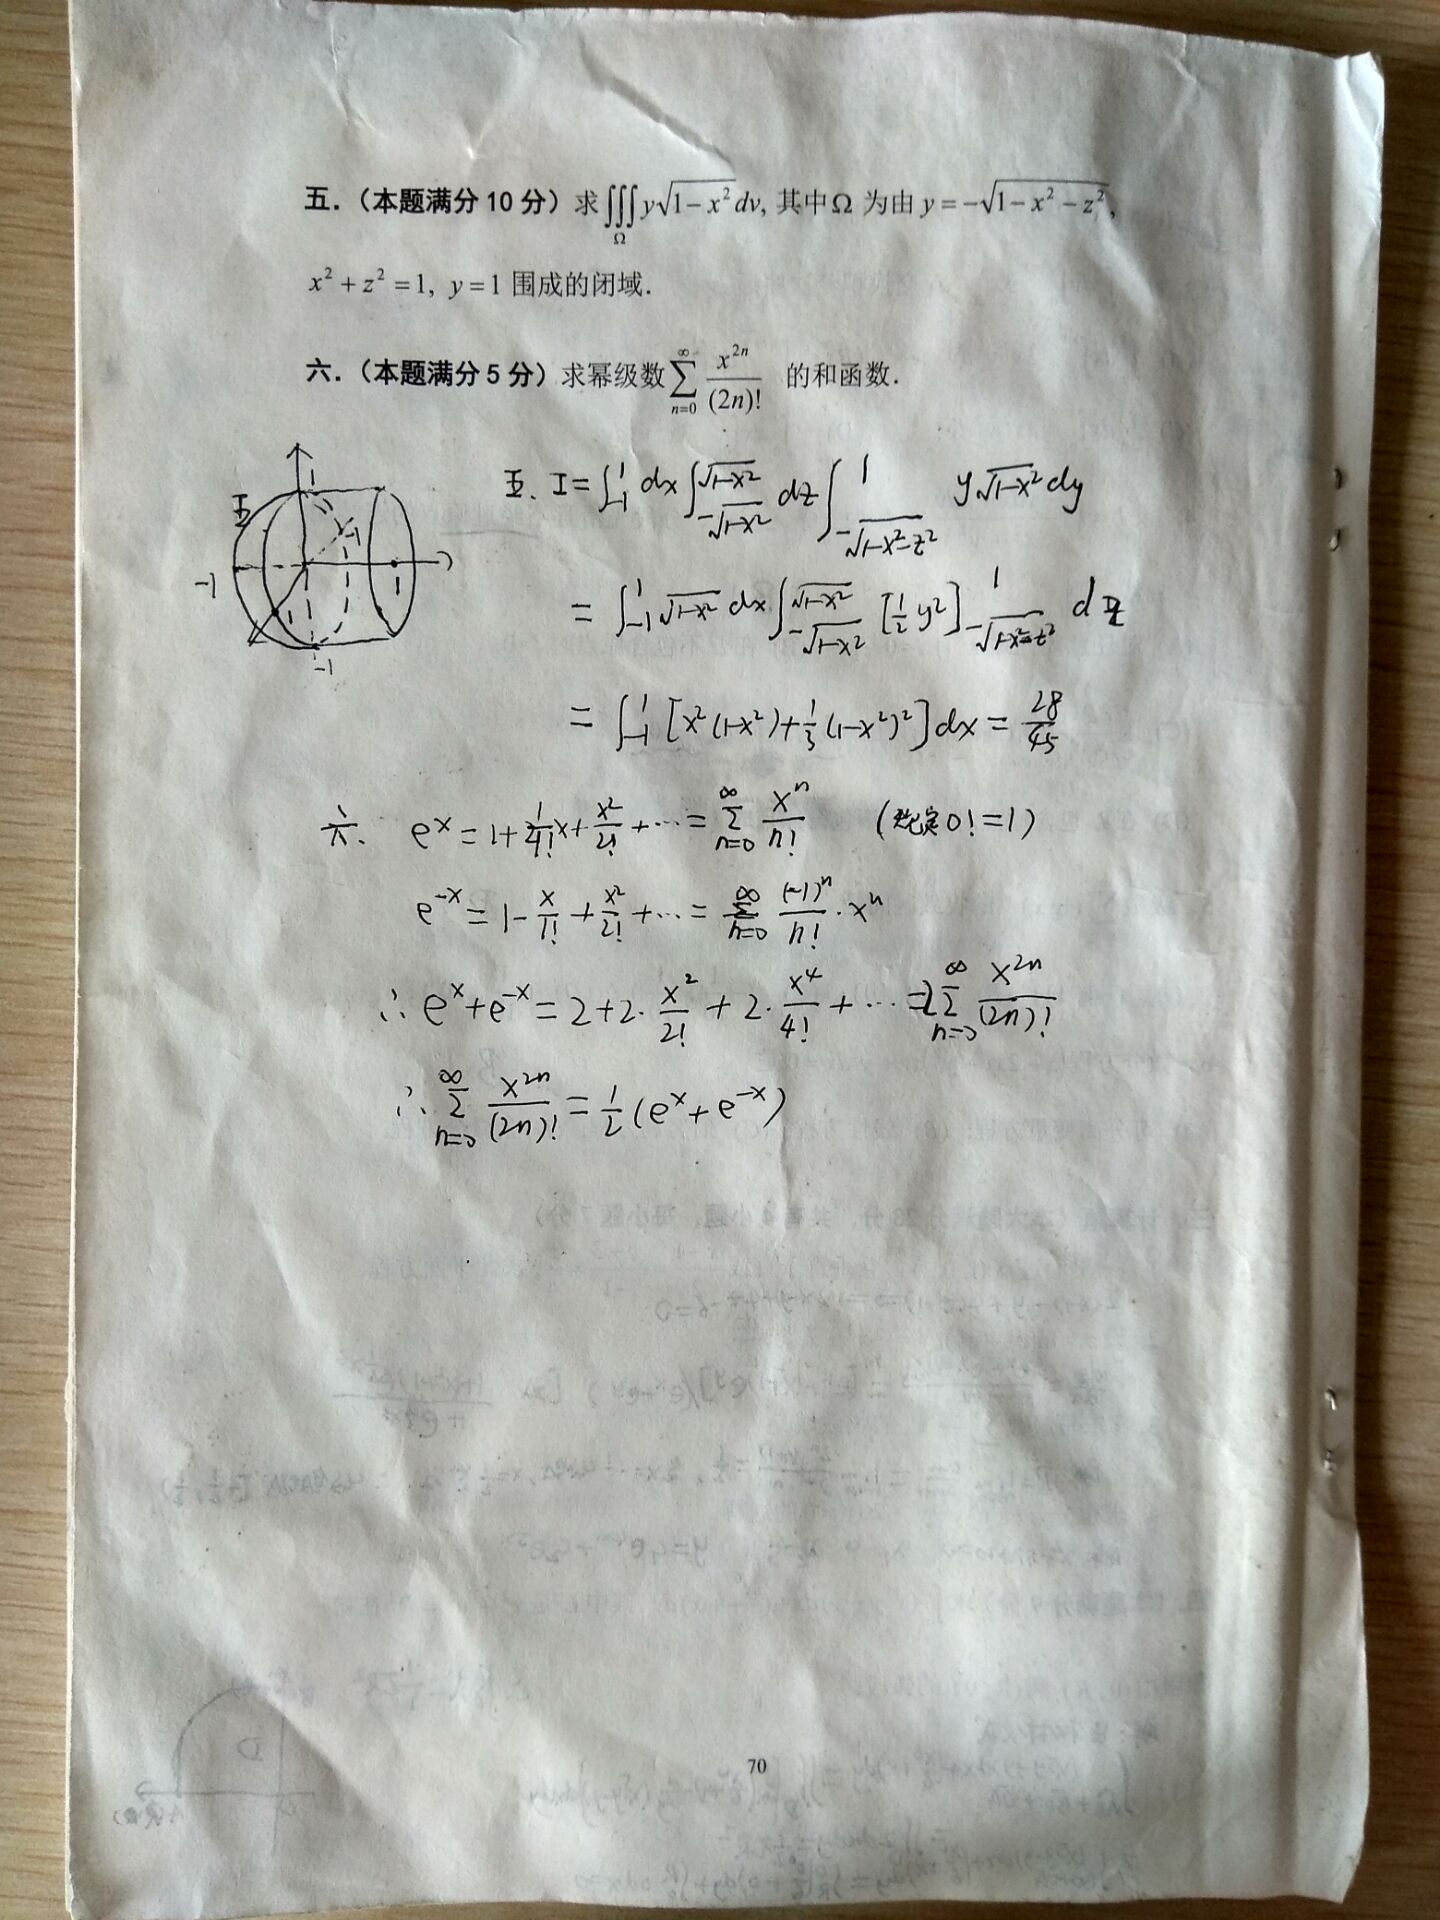 五.（本题满分10分）求∭_Ω y√(1-x²) dv, 其中Ω 为由 y=-√(1-x²-z²),
x²+z²=1, y=1 围成的闭域.
六.（本题满分5分）求幂级数 ∑_{n=0}^{∞} x^{2n}/(2n)! 的和函数.
五
1
-1
-1
1
1
-1
五. I=∫_{-1}^{1} dx ∫_{-√(1-x²)}^{√(1-x²)} dz ∫_{-√(1-x²-z²)}^{1} y√(1-x²) dy
= ∫_{-1}^{1} √(1-x²) dx ∫_{-√(1-x²)}^{√(1-x²)} [½y²]_{-√(1-x²-z²)}^{1} dz
= ∫_{-1}^{1} [x²(1-x²)+⅓(1-x²)²]dx = 28/45
六. e^x = 1+1/1! x+x²/2!+⋯=∑_{n=0}^{∞} x^n/n! (规定0!=1)
e^{-x} = 1-x/1!+x²/2!+⋯=∑_{n=0}^{∞} (-1)^n/n!·x^n
∴ e^x+e^{-x}=2+2·x²/2!+2·x⁴/4!+⋯=2∑_{n=0}^{∞} x^{2n}/(2n)!
∴ ∑_{n=0}^{∞} x^{2n}/(2n)! = ½(e^x+e^{-x})
70